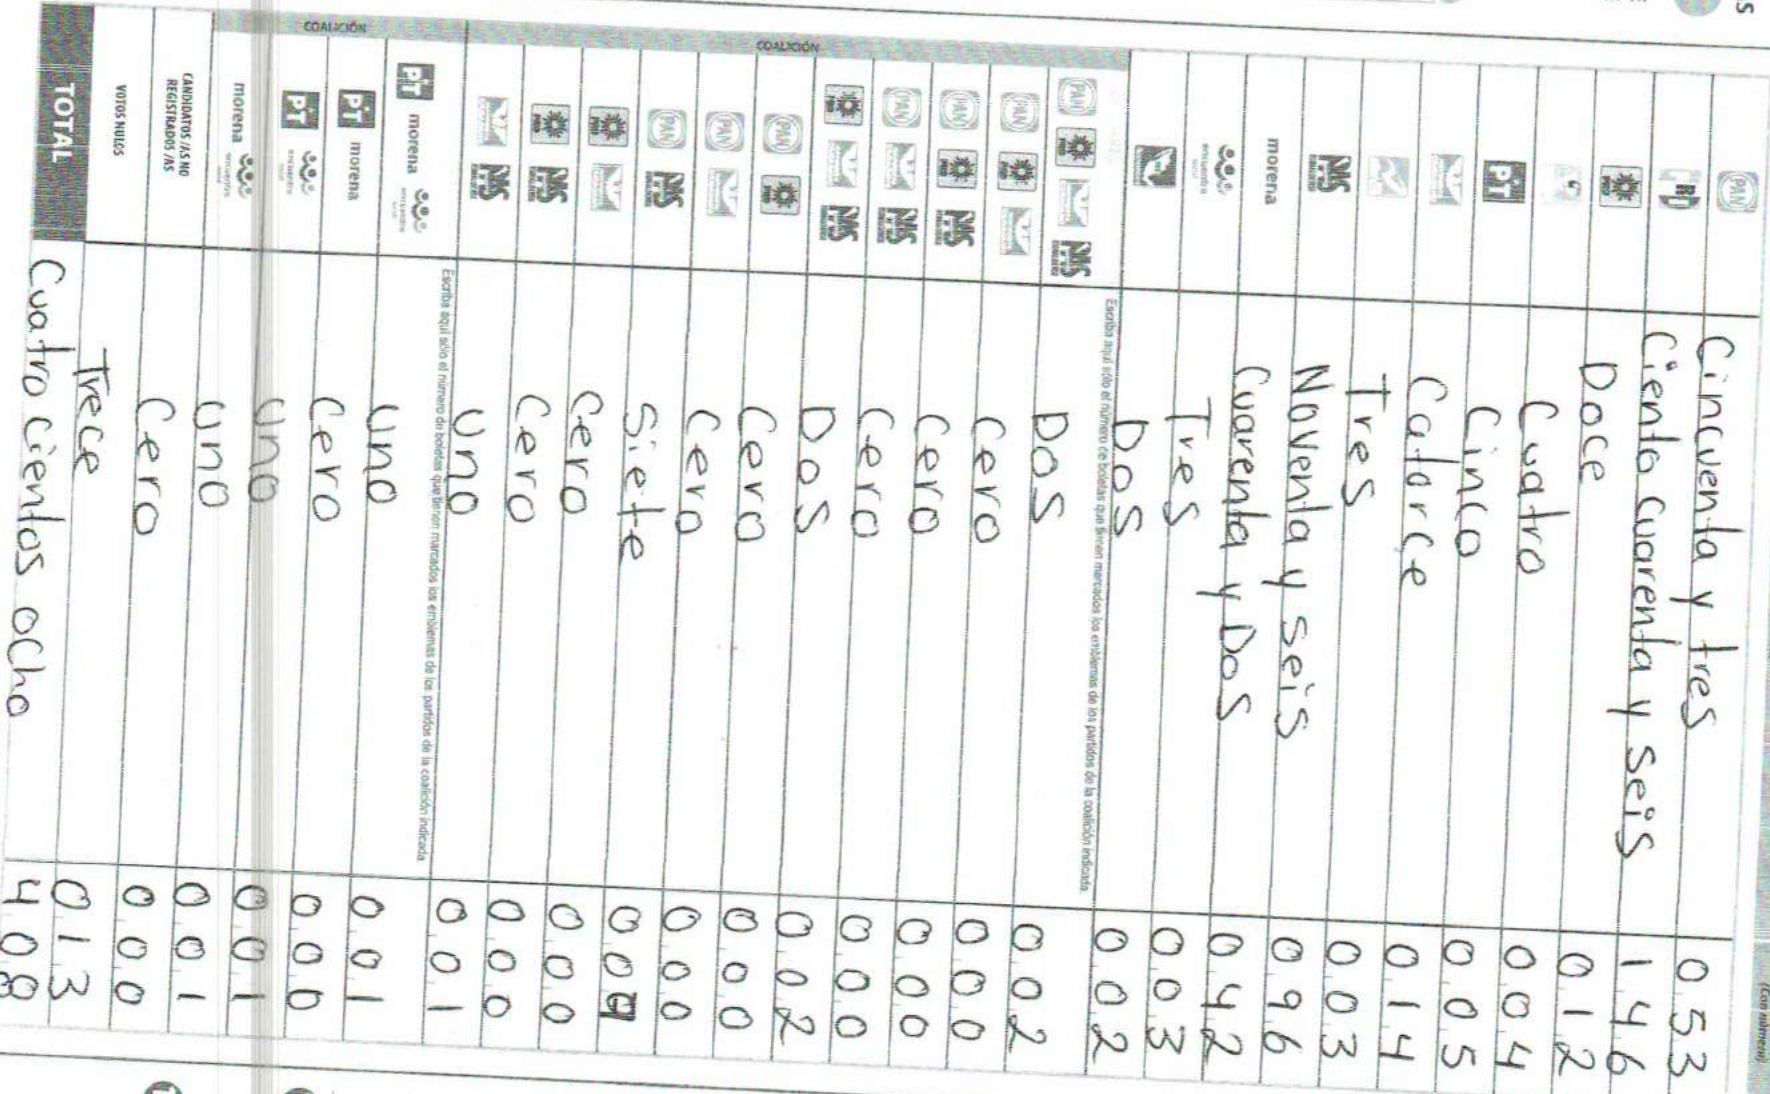 (Con número)
PAN Cincuenta y tres 053
PRI Ciento Cuarenta y seis 146
PRD Doce 012
Cuatro 004
PT Cinco 005
Catorce 014
Tres 003
PAS Noventa y seis 096
morena Cuarenta y Dos 042
encuentro social Tres 003
Dos 002
COALICIÓN
Escriba aquí sólo el número de boletas que tienen marcados los emblemas de los partidos de la coalición indicada.
PAN PRD PAS Dos 002
PAN PRD Cero 000
PAN PRD PAS Cero 000
PAN PAS Cero 000
PRD PAS DoS 002
PAN PRD Cero 000
PAN Cero 000
PAN PAS Siete 00
PRD Cero 000
PRD PAS Cero 000
PAS Uno 001
COALICIÓN
Escriba aquí sólo el número de boletas que tienen marcados los emblemas de los partidos de la coalición indicada
PT morena encuentro social uno 001
PT morena Cero 000
PT encuentro social uno 001
morena encuentro social uno 001
CANDIDATOS/AS NO REGISTRADOS/AS Cero 000
VOTOS NULOS Trece 013
TOTAL Cuatro Cientos ocho 408